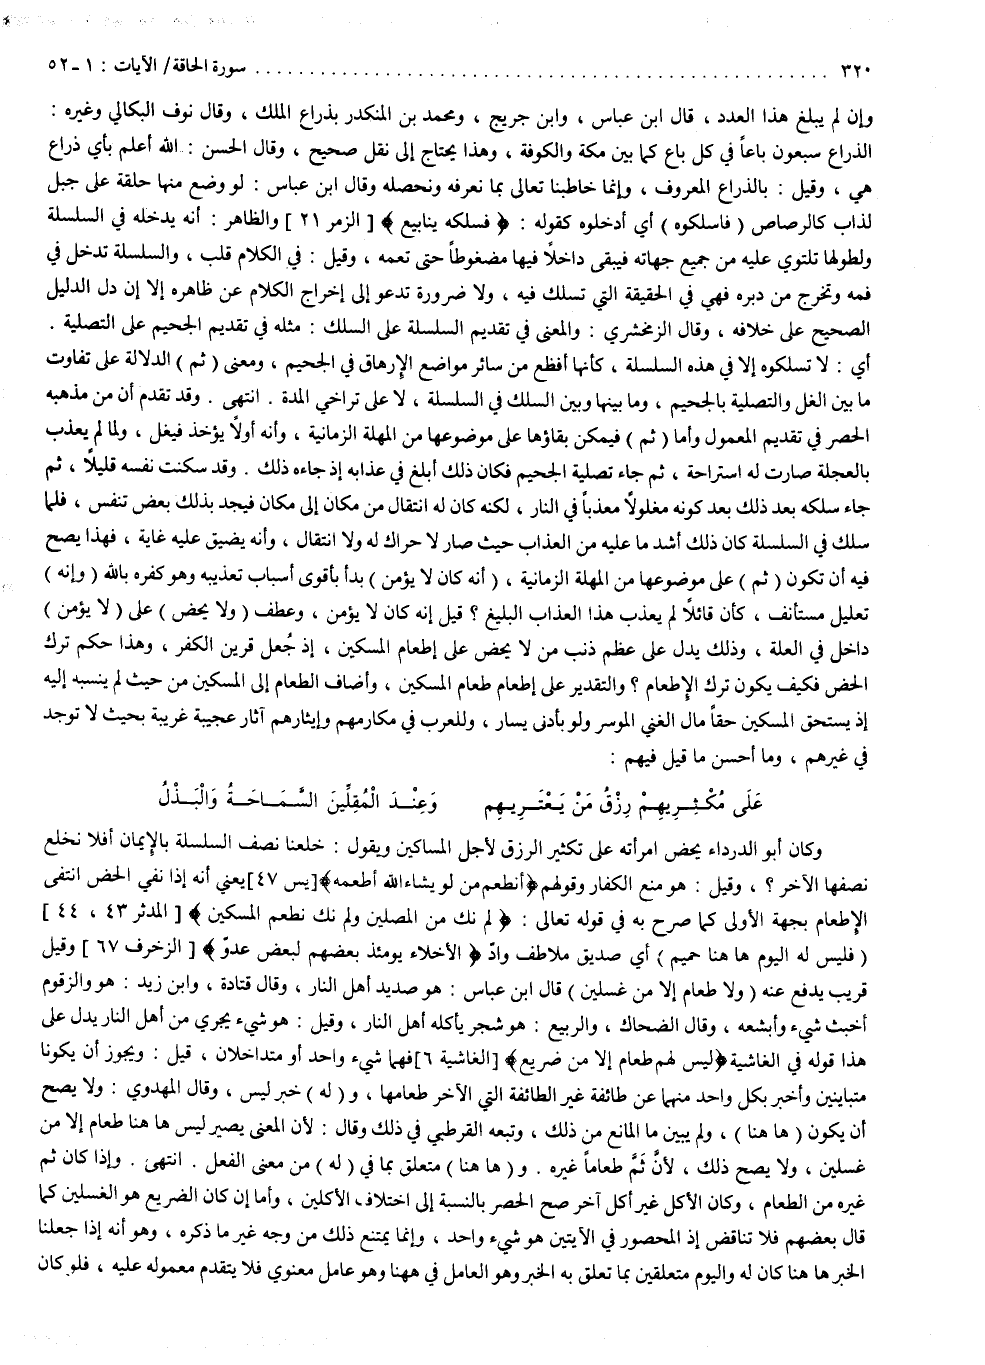 ٣٢٠ ........................................ سورة الحاقة/ الآيات : ١ ـ ٥٢
وإن لم يبلغ هذا العدد ، قال ابن عباس ، وابن جريج ، ومحمد بن المنكدر بذراع الملك ، وقال نوف البكالي وغيره :
الذراع سبعون باعاً في كل باع كما بين مكة والكوفة ، وهذا يحتاج إلى نقل صحيح ، وقال الحسن : الله أعلم بأي ذراع
هي ، وقيل : بالذراع المعروف ، وإنما خاطبنا تعالى بما نعرفه ونحصله وقال ابن عباس : لو وضع منها حلقة على جبل
لذاب كالرصاص ( فاسلكوه ) أي أدخلوه كقوله : ﴿ فسلكه ينابيع ﴾ [ الزمر ٢١ ] والظاهر : أنه يدخله في السلسلة
ولطولها تلتوي عليه من جميع جهاته فيبقى داخلاً فيها مضغوطاً حتى تعمه ، وقيل : في الكلام قلب ، والسلسلة تدخل في
فمه وتخرج من دبره فهي في الحقيقة التي تسلك فيه ، ولا ضرورة تدعو إلى إخراج الكلام عن ظاهره إلا إن دل الدليل
الصحيح على خلافه ، وقال الزمخشري : والمعنى في تقديم السلسلة على السلك : مثله في تقديم الجحيم على التصلية .
أي : لا تسلكوه إلا في هذه السلسلة ، كأنها أفظع من سائر مواضع الإرهاق في الجحيم ، ومعنى ( ثم ) الدلالة على تفاوت
ما بين الغل والتصلية بالجحيم ، وما بينها وبين السلك في السلسلة ، لا على تراخي المدة . انتهى . وقد تقدم أن من مذهبه
الحصر في تقديم المعمول وأما ( ثم ) فيمكن بقاؤها على موضوعها من المهلة الزمانية ، وأنه أولاً يؤخذ فيغل ، ولما لم يعذب
بالعجلة صارت له استراحة ، ثم جاء تصلية الجحيم فكان ذلك أبلغ في عذابه إذ جاءه ذلك . وقد سكنت نفسه قليلاً ، ثم
جاء سلكه بعد ذلك بعد كونه مغلولاً معذباً في النار ، لكنه كان له انتقال من مكان إلى مكان فيجد بذلك بعض تنفس ، فلما
سلك في السلسلة كان ذلك أشد ما عليه من العذاب حيث صار لا حراك له ولا انتقال ، وأنه يضيق عليه غاية ، فهذا يصح
فيه أن تكون ( ثم ) على موضوعها من المهلة الزمانية ، ( أنه كان لا يؤمن ) بدأ بأقوى أسباب تعذيبه وهو كفره بالله ( وإنه )
تعليل مستأنف ، كأن قائلاً لم يعذب هذا العذاب البليغ ؟ قيل إنه كان لا يؤمن ، وعطف ( ولا يحض ) على ( لا يؤمن )
داخل في العلة ، وذلك يدل على عظم ذنب من لا يحض على إطعام المسكين ، إذ جُعل قرين الكفر ، وهذا حكم ترك
الحض فكيف يكون ترك الإطعام ؟ والتقدير على إطعام طعام المسكين ، وأضاف الطعام إلى المسكين من حيث لم ينسبه إليه
إذ يستحق المسكين حقاً مال الغني الموسر ولو بأدنى يسار ، وللعرب في مكارمهم وإيثارهم آثار عجيبة غريبة بحيث لا توجد
في غيرهم ، وما أحسن ما قيل فيهم :
عَلَى مُكْثِرِيهِمْ رِزْقُ مَنْ يَعْتَرِيهِم وَعِنْدَ الْمُقِلِّينَ السَّمَاحَةُ وَالْبَذْلُ
وكان أبو الدرداء يحض امرأته على تكثير الرزق لأجل المساكين ويقول : خلعنا نصف السلسلة بالإيمان أفلا نخلع
نصفها الآخر ؟ ، وقيل : هو منع الكفار وقولهم ﴿أنطعم من لو يشاء الله أطعمه﴾[يس ٤٧]يعني أنه إذا نفي الحض انتفى
الإطعام بجهة الأولى كما صرح به في قوله تعالى : ﴿ لم نك من المصلين ولم نك نطعم المسكين ﴾ [ المدثر ٤٣ ، ٤٤ ]
( فليس له اليوم ها هنا حميم ) أي صديق ملاطف وادّ ﴿ الأخلاء يومئذ بعضهم لبعض عدوّ ﴾ [ الزخرف ٦٧ ] وقيل
قريب يدفع عنه ( ولا طعام إلا من غسلين ) قال ابن عباس : هو صديد أهل النار ، وقال قتادة ، وابن زيد : هو والزقوم
أخبث شيء وأبشعه ، وقال الضحاك ، والربيع : هو شجر يأكله أهل النار ، وقيل : هو شيء يجري من أهل النار يدل على
هذا قوله في الغاشية ﴿ليس لهم طعام إلا من ضريع﴾ [الغاشية ٦]فهما شيء واحد أو متداخلان ، قيل : ويجوز أن يكونا
متباينين وأخبر بكل واحد منهما عن طائفة غير الطائفة التي الآخر طعامها ، و ( له ) خبر ليس ، وقال المهدوي : ولا يصح
أن يكون ( ها هنا ) ، ولم يبين ما المانع من ذلك ، وتبعه القرطبي في ذلك وقال : لأن المعنى يصير ليس ها هنا طعام إلا من
غسلين ، ولا يصح ذلك ، لأنَّ ثَمَّ طعاماً غيره . و ( ها هنا ) متعلق بما في ( له ) من معنى الفعل . انتهى . وإذا كان ثم
غيره من الطعام ، وكان الأكل غير أكل آخر صح الحصر بالنسبة إلى اختلاف الأكلين ، وأما إن كان الضريع هو الغسلين كما
قال بعضهم فلا تناقض إذ المحصور في الآيتين هو شيء واحد ، وإنما يمتنع ذلك من وجه غير ما ذكره ، وهو أنه إذا جعلنا
الخبر ها هنا كان له واليوم متعلقين بما تعلق به الخبر وهو العامل في ههنا وهو عامل معنوي فلا يتقدم معموله عليه ، فلو كان